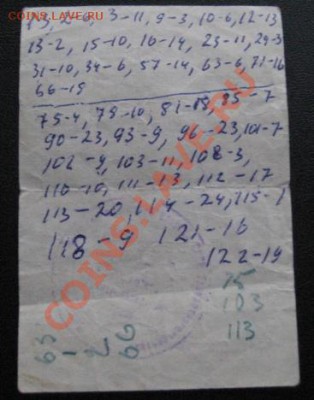 2-6, 3-11, 9-3, 10-6, 12-13
13-2, 15-10, 16-14, 23-11, 29-3
31-10, 34-6, 57-14, 63-6, 71-16
66-19
75-4, 79-10, 81-15, 85-7
90-23, 93-9, 96-23, 101-7
102-9, 103-11, 108-3,
110-10, 111-13, 112-17
113-20, 114-24, 115-1
118-9 121-16
122-19
75
103
113
COINS.LAVE.RU